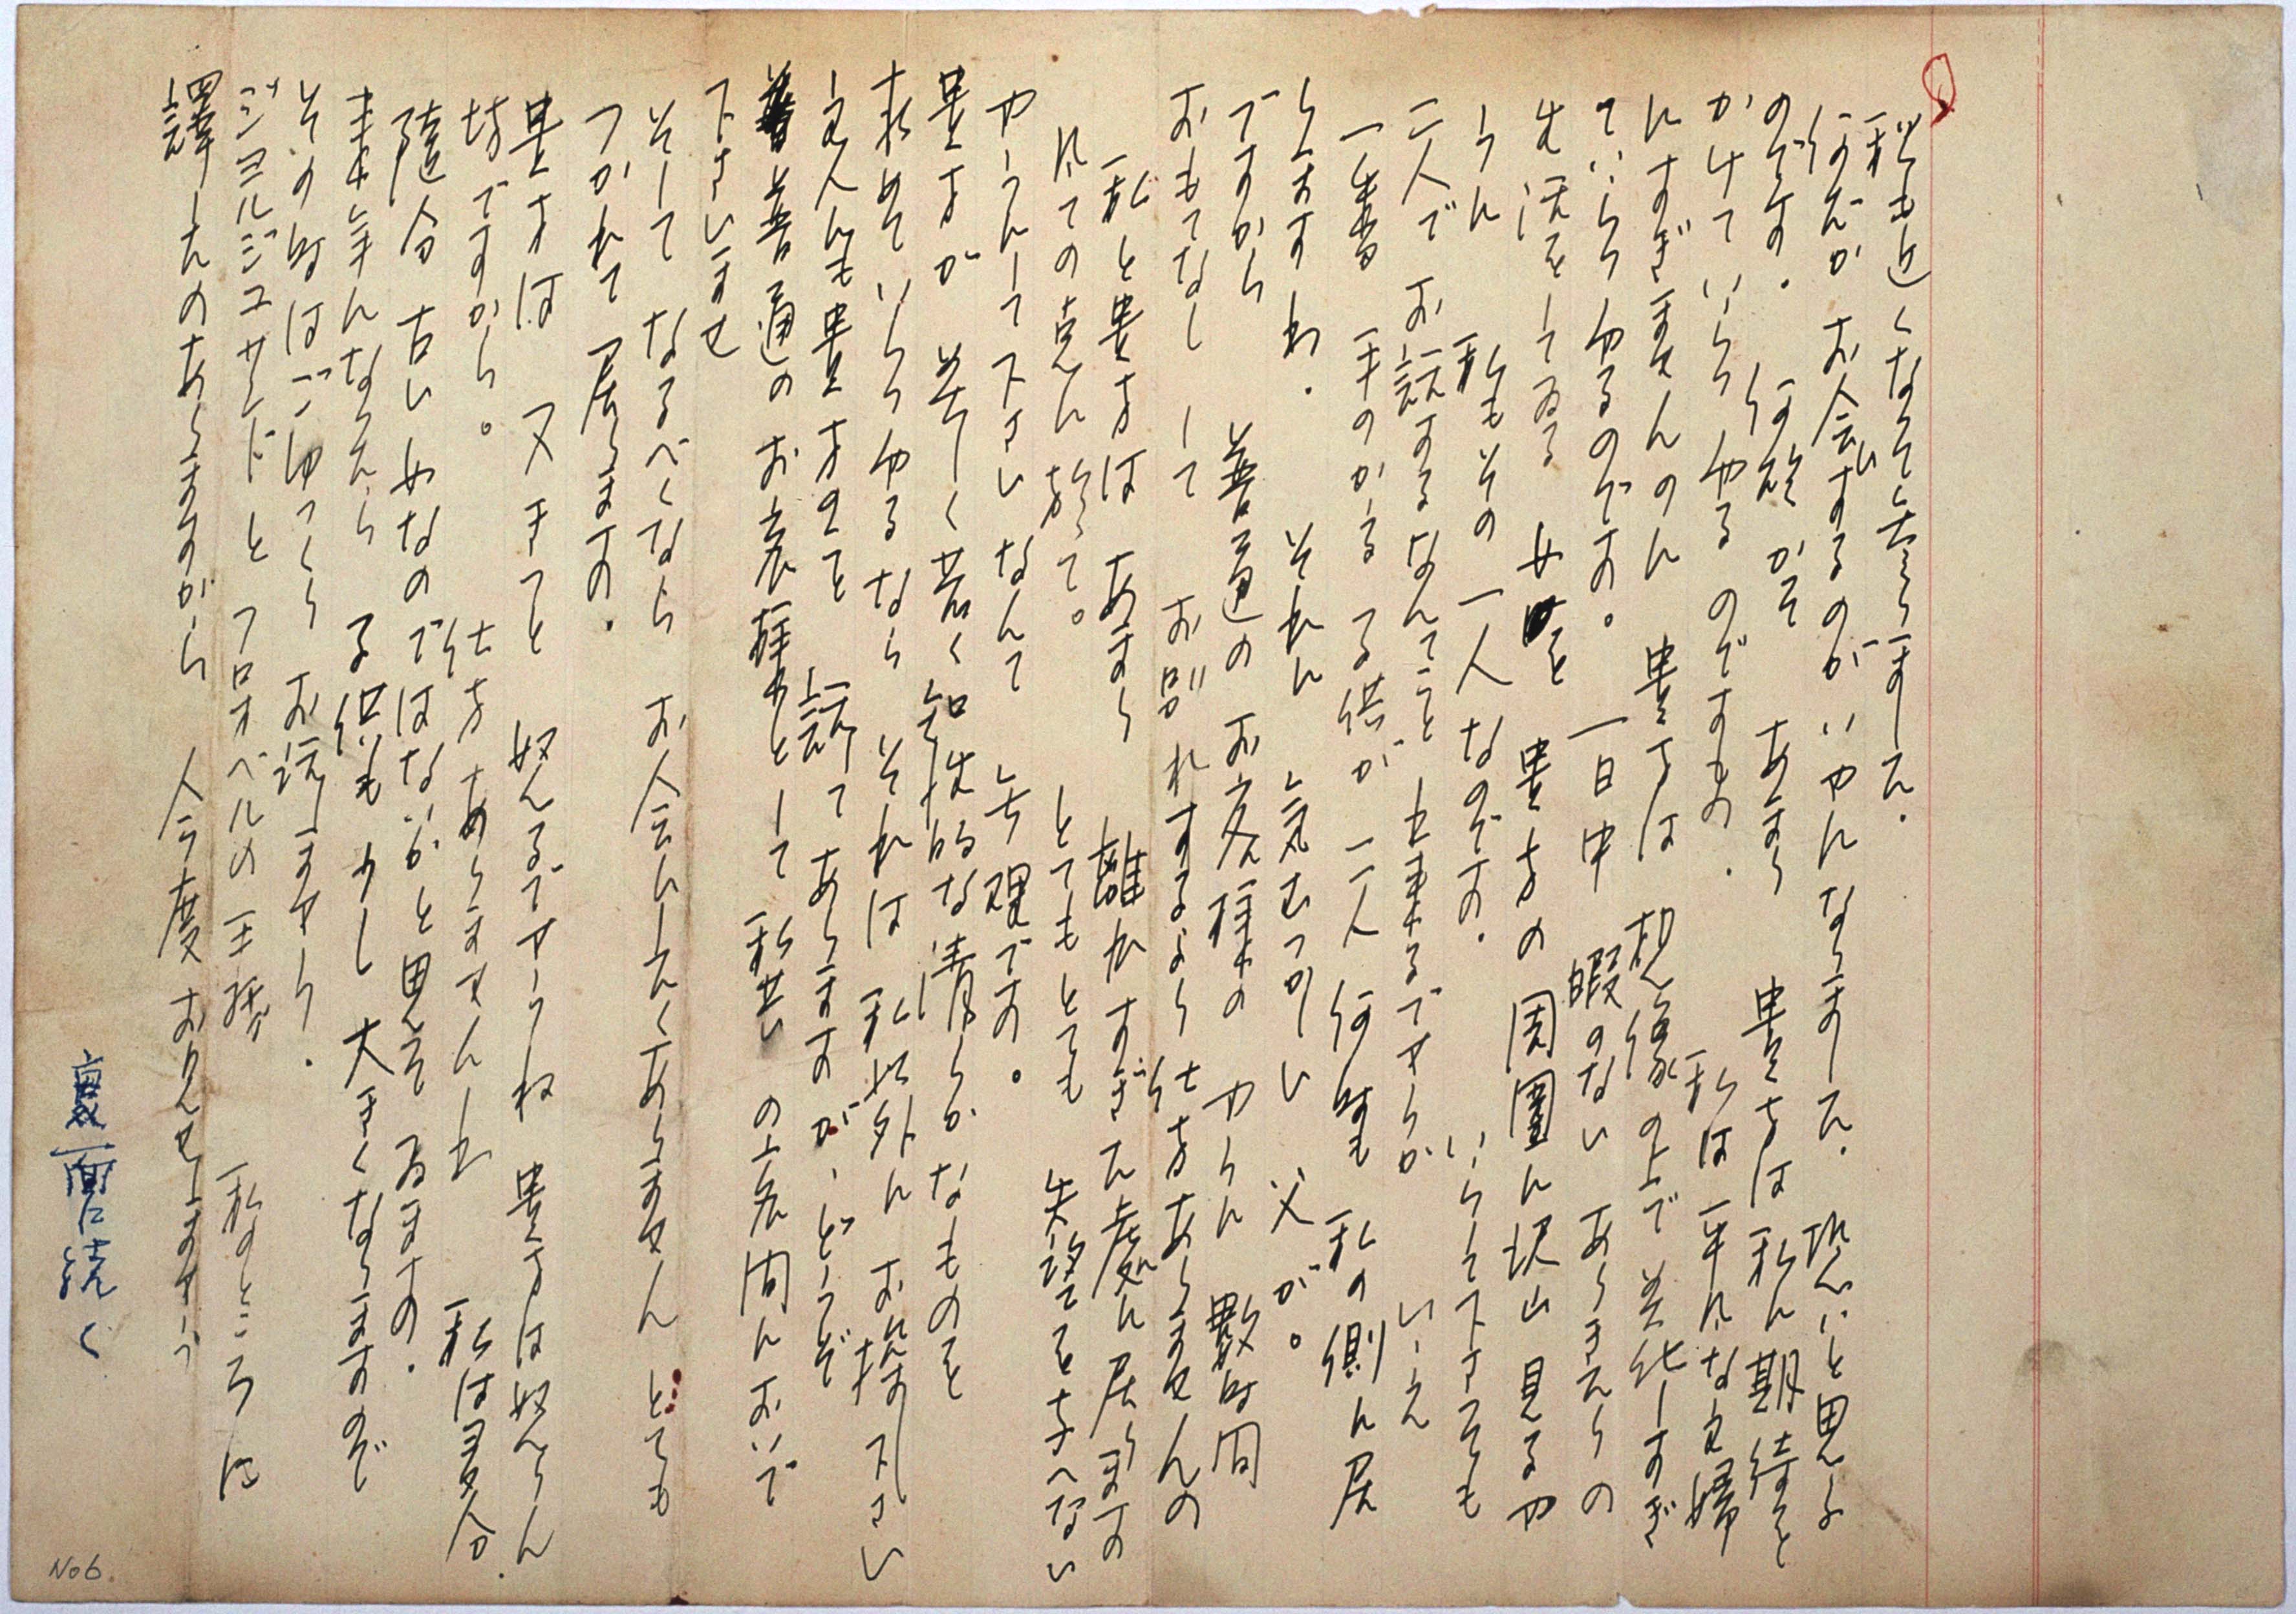 私も近くなって参りました.
何だか お会ひするのが いやになりました. 恐いと思ふ
のです. 何故かって あまり 貴方は私に期待を
かけていらっしやるのですもの. 私は平凡な主婦
にすぎませんのに 貴方は 想像の上で美化しすぎ
ていらっしやるのです. 一日中 暇のない あらきたりの
生活をしてゐる 女を 貴方の周囲に沢山見るや
うに 私もその一人なのです. いらして下さっても
二人でお話するなんてこと 出来るでせうか いゝえ
一番 手のかゝる子供が 二人 何時も 私の側に居
りますわ. それに 気むつかしい 父が。
ですから 普通の お友様の やうに 数時間
おもてなし して お別れするより仕方ありませんの
私と貴方は あまり 離れすぎた處に居ります
凡ての点に於て。 とてもとても 失望を与へない
やうにして下さいなんて 無理です。
貴方が 若く 若く 知性的な清らかなものを
求めていらっしやるなら それは 私以外に お探し下さい
主人にも貴方のこと 話してありますが、どうぞ
普通のお友様として 私共の之間におい​で
下さいませ
そして なるべくなら お会ひしたくありません とても
つかれて居ります.
貴方は 又きっと 怒るでせうね 貴方は怒りん
坊ですから。 仕方ありませんわ 私は多分
随分 古い女なのではないかと思って ゐます.
来年になったら 子供も少し 大きくなりますので
その時はごゆっくり お話しませう.
ジヨルジユサンドと フロオベルの手紙 私のところに
譯したのありますから 今度お見せしませう
裏面に続く
No 6.